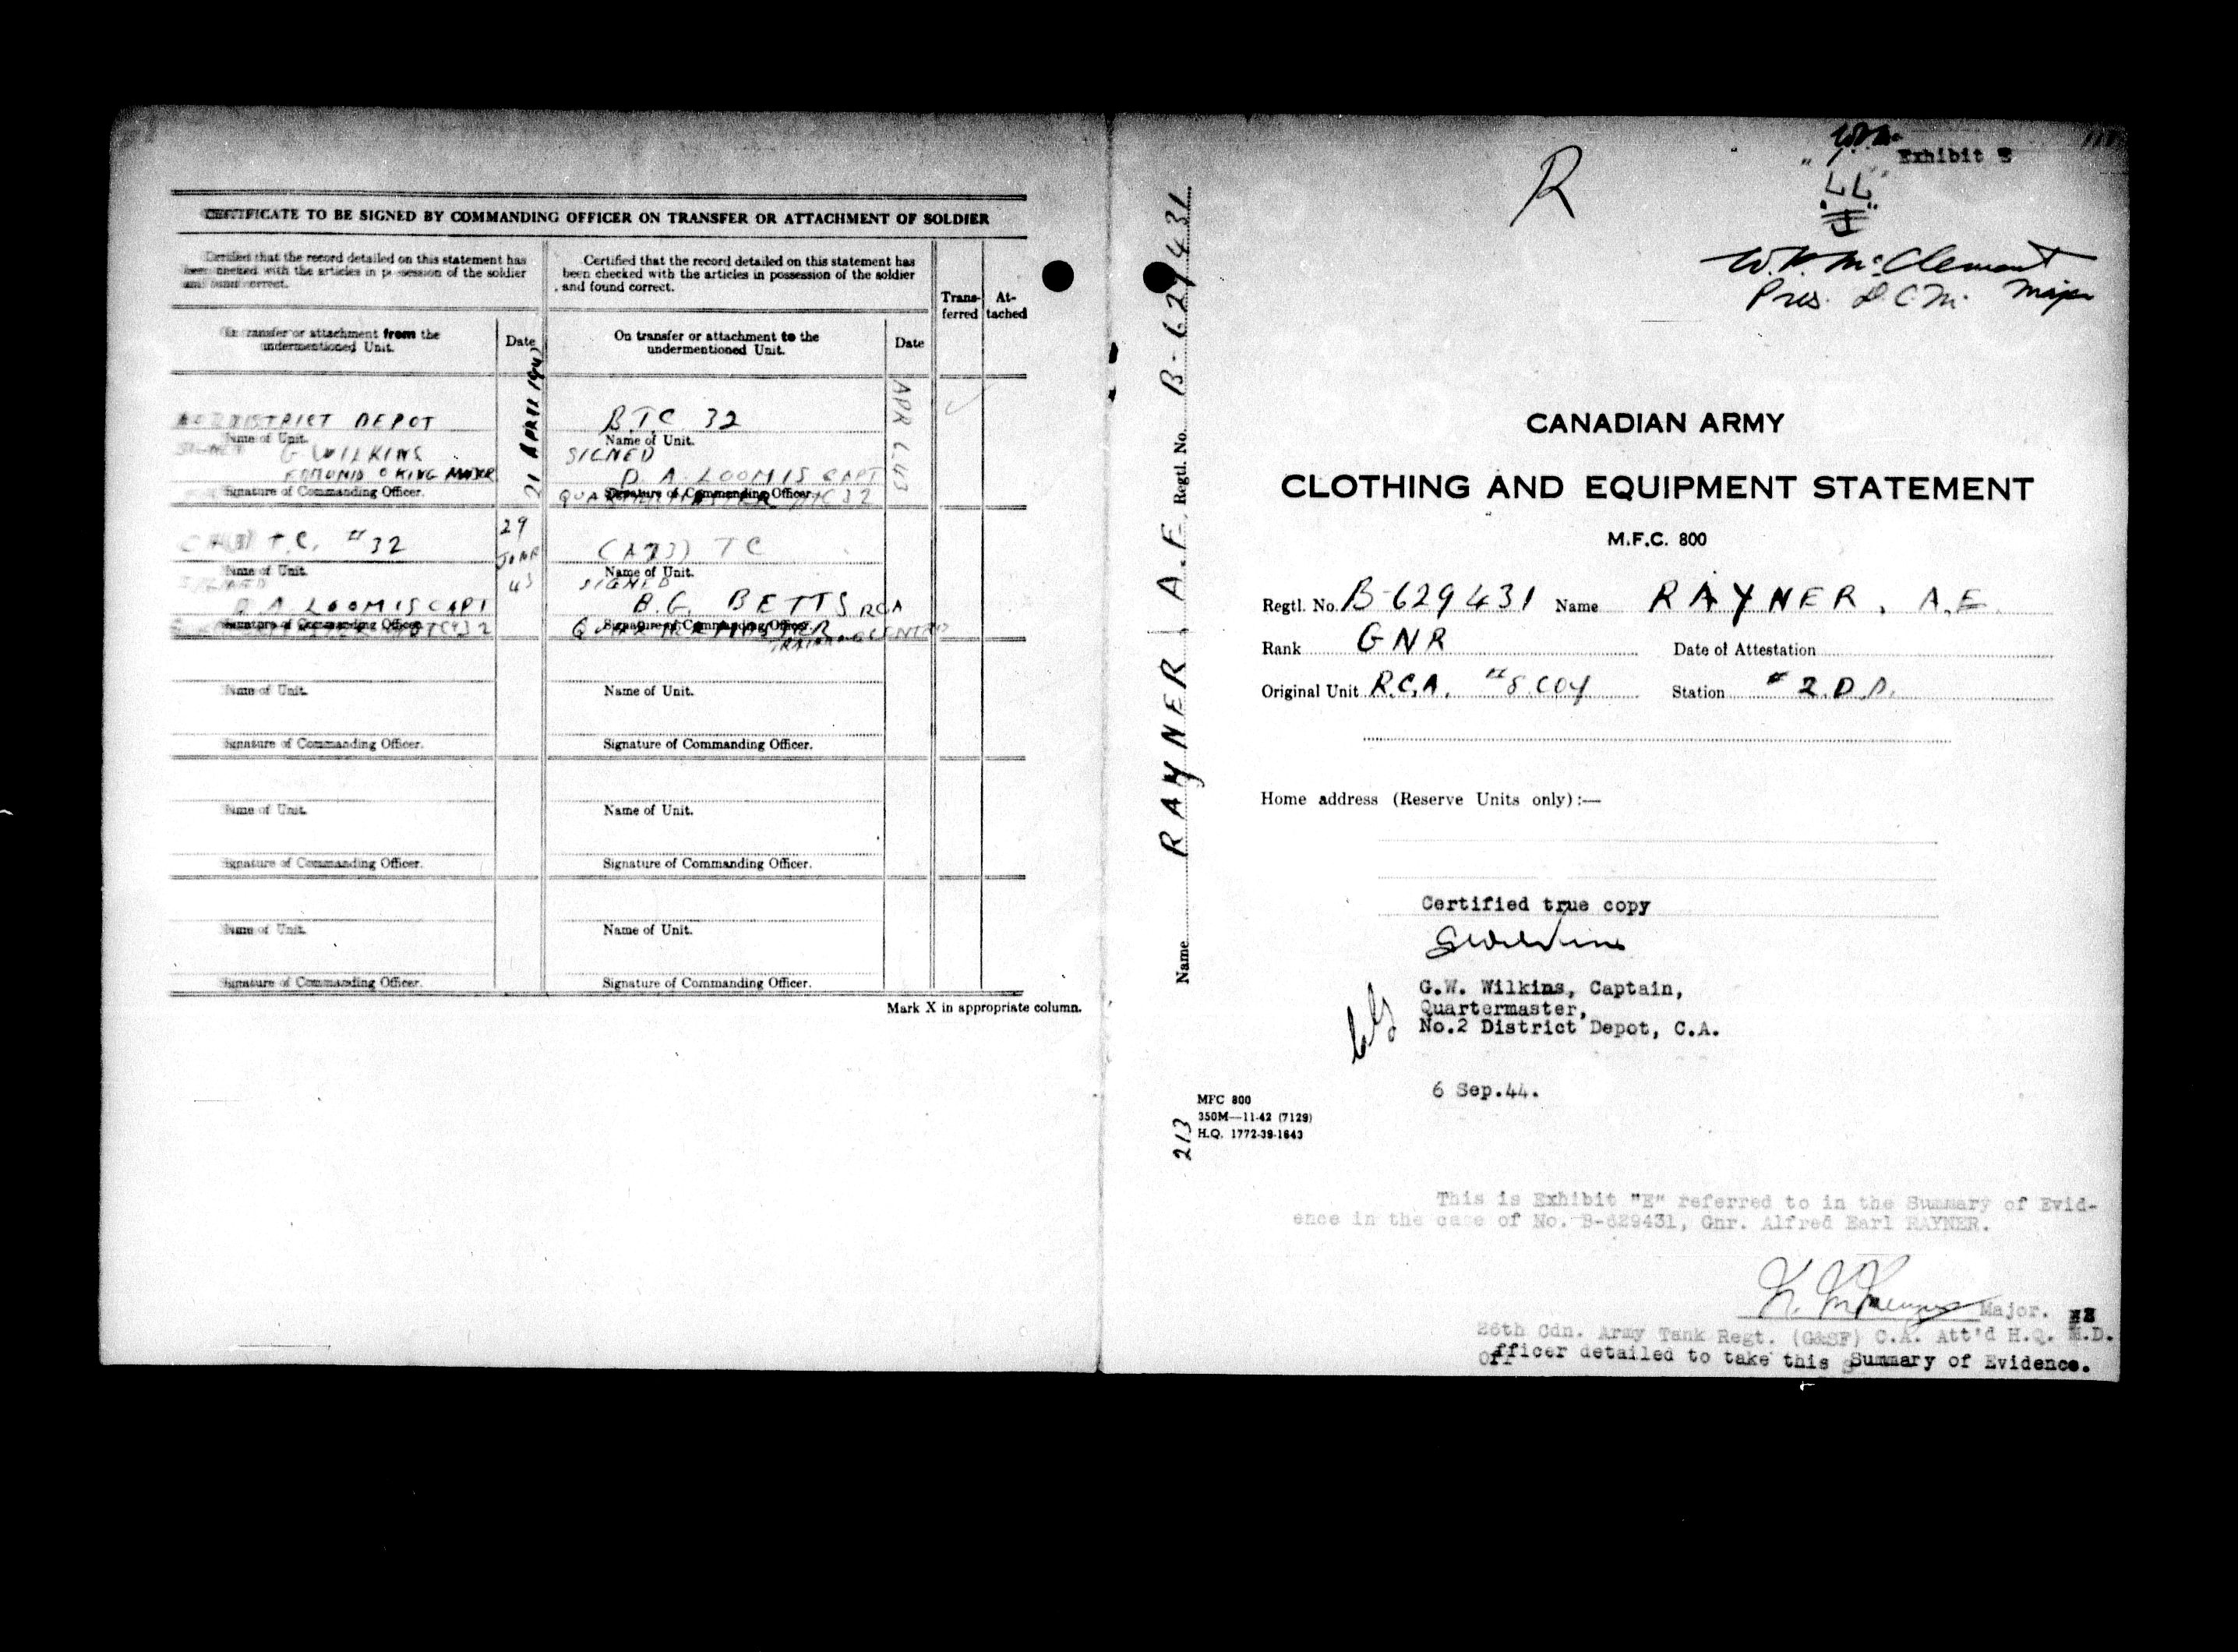 CERTIFICATE TO BE SIGNED BY COMMANDING OFFICER ON TRANSFER OR ATTACHMENT OF SOLDIER
Certified that the record detailed on this statement has
been checked with the articles in possession of the soldier
and found correct.
Certified that the record detailed on this statement has
been checked with the articles in possession of the soldier
and found correct.
Trans-
ferred
At-
tached
On transfer or attachment from the
undermentioned Unit.
Date
On transfer or attachment to the
undermentioned Unit.
Date
DISTRICT DEPOT
Name of Unit.
SIGNED G WILKINS
EDMUND O KING MAJOR
Signature of Commanding Officer.
21 APRIL
B.T.C. 32
Name of Unit.
SIGNED
D. A. LOOMIS CAPT
Signature of Commanding Officer.
QUARTERMASTER
APR
T.C. #32
Name of Unit.
SIGNED
D A LOOMIS CAPT
Signature of Commanding Officer.
29
JUNE
43
TC
Name of Unit.
SIGNED
B.G. BETTS RCA
Signature of Commanding Officer.
QUARTERMASTER
TRAINING CENTRE
Name of Unit.
Name of Unit.
Signature of Commanding Officer.
Signature of Commanding Officer.
Name of Unit.
Name of Unit.
Signature of Commanding Officer.
Signature of Commanding Officer.
Name of Unit.
Name of Unit.
Signature of Commanding Officer.
Signature of Commanding Officer.
Mark X in appropriate column.
Name RAYNER A.E. Regtl. No. B-629431
213
R
Exhibit E
W.P. McClement
Pres. D.C.M. Major
CANADIAN ARMY
CLOTHING AND EQUIPMENT STATEMENT
M.F.C. 800
Regtl. No. B-629431 Name RAYNER, A.E.
Rank GNR Date of Attestation
Original Unit R.C.A. #8 COY Station #2.D.D.
Home address (Reserve Units only):—
Certified true copy
G.W. Wilkins, Captain,
Quartermaster,
No.2 District Depot, C.A.
6 Sep.44.
MFC 800
350M—11-42 (7129)
H.Q. 1772-39-1643
This is Exhibit "E" referred to in the Summary of Evid-
ence in the case of No. B-629431, Gnr. Alfred Earl RAYNER.
Major.
26th Cdn. Army Tank Regt. (G&SF) C.A. Att'd H.Q. M.D.
Officer detailed to take this Summary of Evidence.